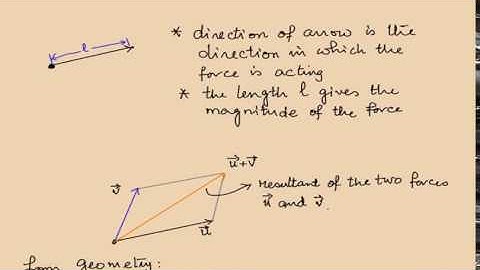 l
* direction of arrow is the
direction in which the
force is acting
* the length l gives the
magnitude of the force
u⃗+v⃗
v⃗
resultant of the two forces
u⃗ and v⃗.
u⃗
from geometry: